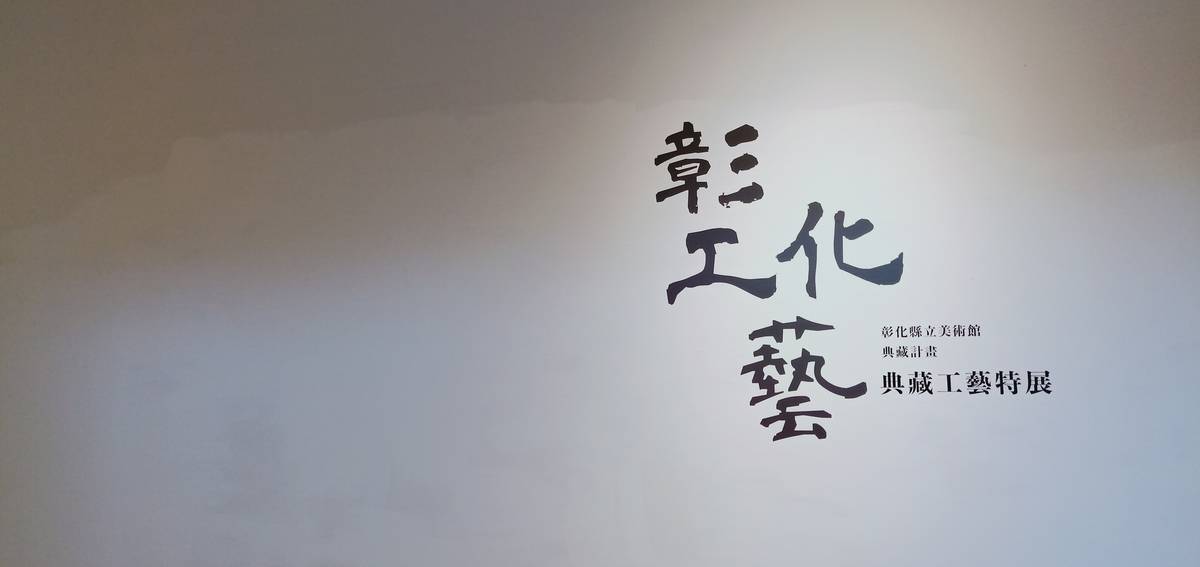 彰化
工藝
彰化縣立美術館
典藏計畫
典藏工藝特展